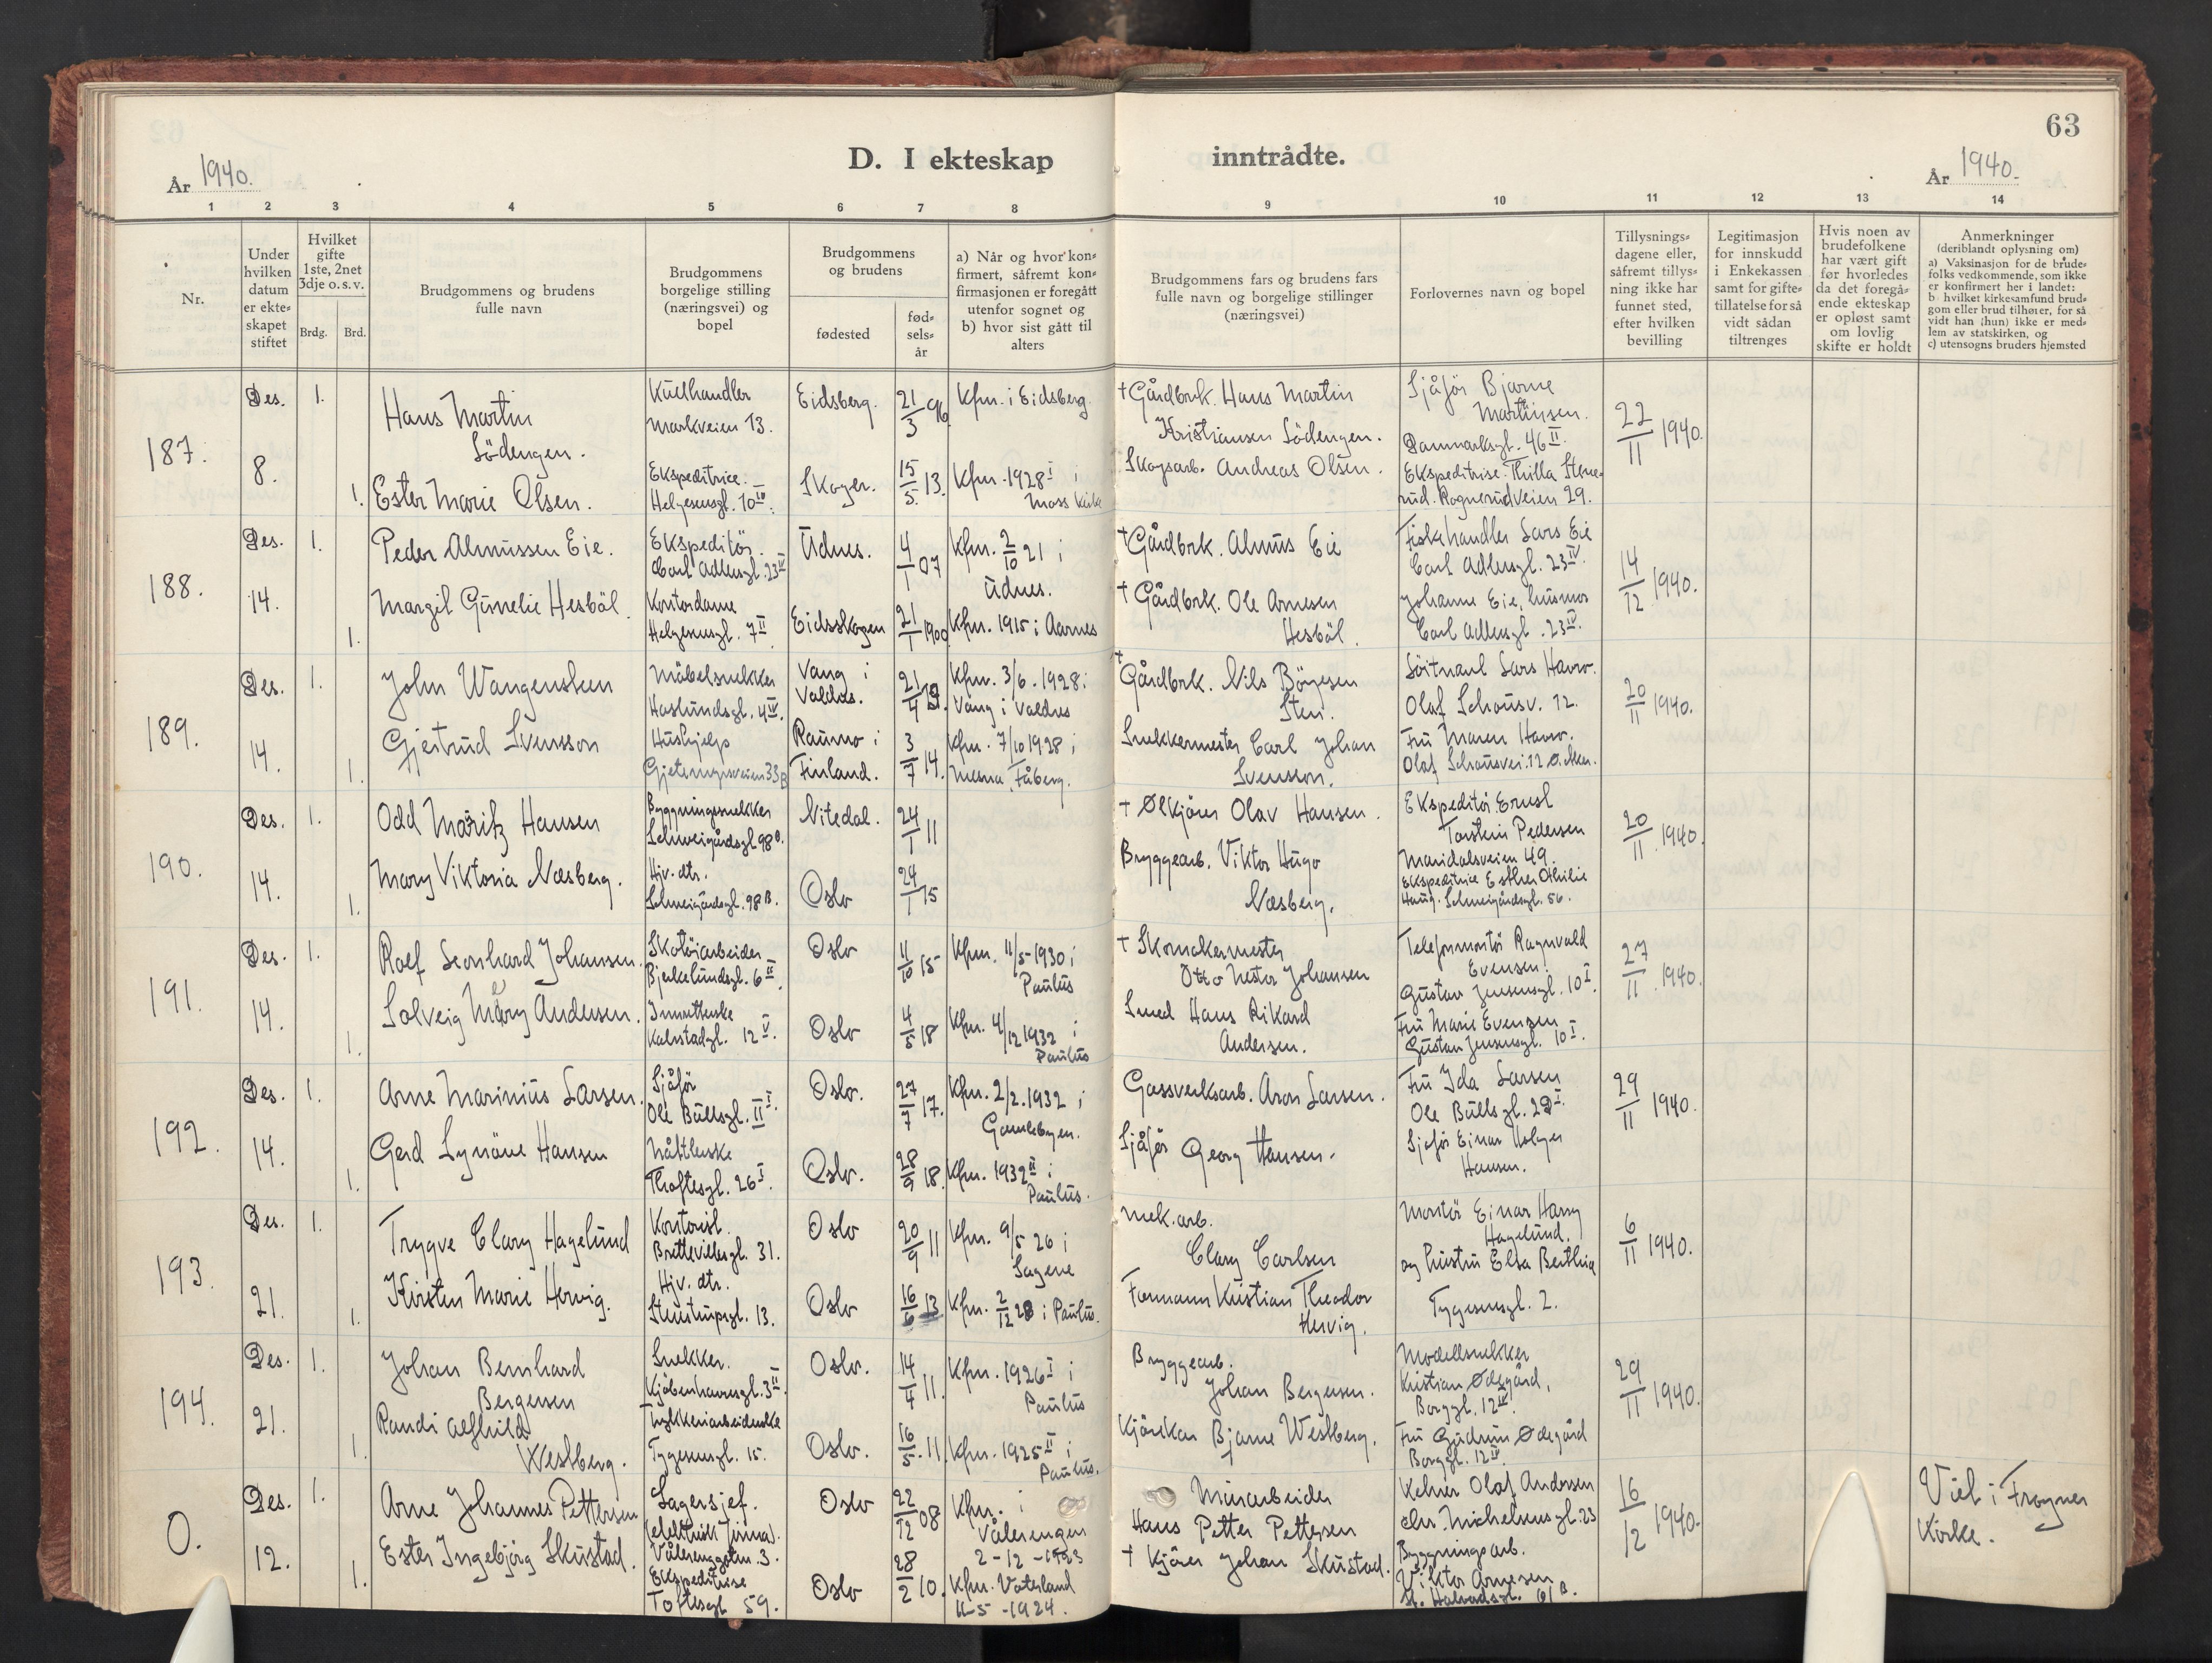 63
D. I ekteskap inntrådte.
År 1940.
År 1940.
1 2 3 4 5 6 7 8 9 10 11 12 13 14
Nr.
Under hvilken datum er ekte= skapet stiftet
Hvilket gifte 1ste, 2net 3dje o. s. v.
Brdg. Brd.
Brudgommens og brudens fulle navn
Brudgommens borgelige stilling (næringsvei) og bopel
Brudgommens og brudens
fødested
fød= sels= år
a) Når og hvor kon= firmert, såfremt kon= firmasjonen er foregått utenfor sognet og b) hvor sist gått til alters
Brudgommens fars og brudens fars fulle navn og borgelige stillinger (næringsvei)
Forlovernes navn og bopel
Tillysnings= dagene eller, såfremt tillys= ning ikke har funnet sted, efter hvilken bevilling
Legitimasjon for innskudd i Enkekassen samt for gifte= tillatelse for så vidt sådan tiltrenges
Hvis noen av brudefolkene har vært gift før hvorledes da det foregå= ende ekteskap er opløst samt om lovlig skifte er holdt
Anmerkninger
(deriblandt oplysning om)
a) Vaksinasjon for de brude= folks vedkommende, som ikke er konfirmert her i landet:
b) hvilket kirkesamfund brud= gom eller brud tilhører, for så vidt han (hun) ikke er med= lem av statskirken, og
c) utensogns bruders hjemsted
187.
Des. 8.
1.
Hans Martin
Södengen.
Kullhandler
Markveien 13.
Eidsberg.
21/3 96
Kfm. i Eidsberg.
† Gårdbrk. Hans Martin
Kristiansen Södengen.
Sjåför Bjarne
Martinsen.
Danmarksgt. 46 II.
22/11 1940.
1.
Ester Marie Olsen.
Ekspeditrice.
Helgesensgt. 10 IV.
Skoger.
15/5 13.
Kfm. 1928 I i
Moss kirke
Skogsarb. Andreas Olsen.
Ekspeditrise Thilla Stene=
rud. Rognerudveien 29.
188.
Des. 14.
1.
Peder Almussen Eie.
Ekspeditör.
Carl Adlersgt. 23 IV
Udnes.
4/1 07
Kfm. 2/10 21 i
Udnes.
† Gårdbrk. Almus Eie
Fiskehandler Lars Eie
Carl Adlersgt. 23 IV.
14/12 1940.
1.
Margit Gunelie Hesböl
Kontordame
Helgesensgt. 7 II
Eidsskogen
21/1 1900
Kfm. 1915 i Aarnes
† Gårdbrk. Ole Arnesen
Hesböl.
Johanne Eie, husmor
Carl Adlersgt. 23 IV.
189.
Des. 14.
1.
John Wangensteen
Möbelsnekker
Haslundsgt. 4 IV.
Vang i
Valdres.
21/4
Kfm. 3/6. 1928 i
Vang i Valdres
† Gårdbrk. Nils Börgesen
Sten.
Lars
Olaf Schousv. 12.
20/11 1940.
1.
Gjertrud Svensson
Hushjelp
Gjeteryrveien 33 B
Raumo i
Finland.
3/7 14.
Kfm. 7/10 1928 i
Mesna, Fåberg.
Snekkermester Carl Johan
Svensson.
Fru Maren
Olaf Schousvei. 12 Ø. Aker.
190.
Des. 14.
1.
Odd Moritz Hansen
Bygningssnekker
Schweigårdsgt 98 B.
Nitedal.
24/1 11
† Ølkjörer Olav Hansen.
Ekspeditör Ernst
Torstein Pedersen
Maridalsveien 49.
20/11 1940.
1.
Mary Viktoria Næsberg.
Hjv. dtr.
Schweigårdsgt. 98 B.
Oslo
24/1 15
Bryggearb. Viktor Hugo
Næsberg.
Ekspeditrice Esther Othilie
Haug. Schweigårdsgt. 56.
191.
Des. 14.
1.
Rolf Leonhard Johansen.
Skotöiarbeider
Bjerkelundsgt. 6 II
Oslo
11/10 15
Kfm. 11/5-1930 i
Paulus
† Skomakermester
Otto Nestor Johansen
Telefonmontör Ragnvald
Evensen.
Gustav Jensensgt. 10 I.
27/11. 1940.
1.
Solveig Mary Andersen.
Kalstadgt. 12 V.
Oslo
4/5 18
Kfm. 4/12 1932 i
Paulus
Smed Hans Rikard
Andersen.
Fru Marie Evensen
Gustav Jensensgt. 10 I.
192.
Des. 14.
1.
Arne Marinius Larsen.
Sjåför
Ole Bullsgt.
Oslo.
27/7 17.
Kfm. 2/2. 1932 i
Gamlebyen.
Gassverksarb. Aron Larsen.
Fru Ida Larsen
Ole Bullsgt.
29/11 1940.
1.
Gerd Synöve Hansen
Thoftesgt. 26 I.
Oslo.
28/9 18.
Kfm. 1932 II i
Paulus.
Sjåför Georg Hansen.
Sjåför Einar Holger
Hansen.
193.
Des. 21.
1.
Trygve Clary Hagelund
Kontorist.
Brettevillesgt. 31.
Oslo
20/9 11
Kfm. 9/5 26 i
Sagene
Mek. arb.
Clary Carlsen
Montör Einar Harry
Hagelund.
6/11 1940.
1.
Kirsten Marie Hervig.
Hjv. dtr.
Steenstrupsgt. 13.
Oslo
16/6 13
Kfm. 2/12 28 i Paulus.
Formann Kristian Theodor
Hervig.
og hustru Elsa Berthia
Tygesensgt. 2.
194.
Des. 21.
1.
Johan Bernhard
Bergersen
Snekker.
Kjöbenhavnsgt. 3 II.
Oslo.
14/4 11.
Kfm. 1926 I i
Paulus
Bryggearb.
Johan Bergersen.
Modellsnekker
Kristian Ødegård,
Borggt. 12 IV.
29/11 1940.
1.
Randi Alfhild
Westberg.
Trykkeriarbeiderske
Tygesensgt. 15.
Oslo.
16/5. 11
Kfm. 1925 II i
Paulus.
Bjarne Westberg.
Fru Gudrun Ødegård
Borggt. 12 IV.
0.
Des. 12.
1.
Arne Johannes Pettersen
Lagersjef.
(elektrisk firma).
Vålerenggaten. 3.
Oslo
22/12 08
Kfm. i
Vålerengen
2-12-1923
Murarbeider
Hans Petter Pettersen
Kelner Olaf Andersen
Chr. Michelsensgt. 23
16/12 1940.
Viet i Frogner
Kirke.
1.
Ester Ingebjörg Skustad.
Ekspeditrise
Toftesgt 59.
Oslo
28/2 10.
Kfm. Vaterland
11-5-1924.
† Kjörer Johan Skustad.
Bygningsarb.
Viktor Arnesen
St. Halvardsgt. 61 B.